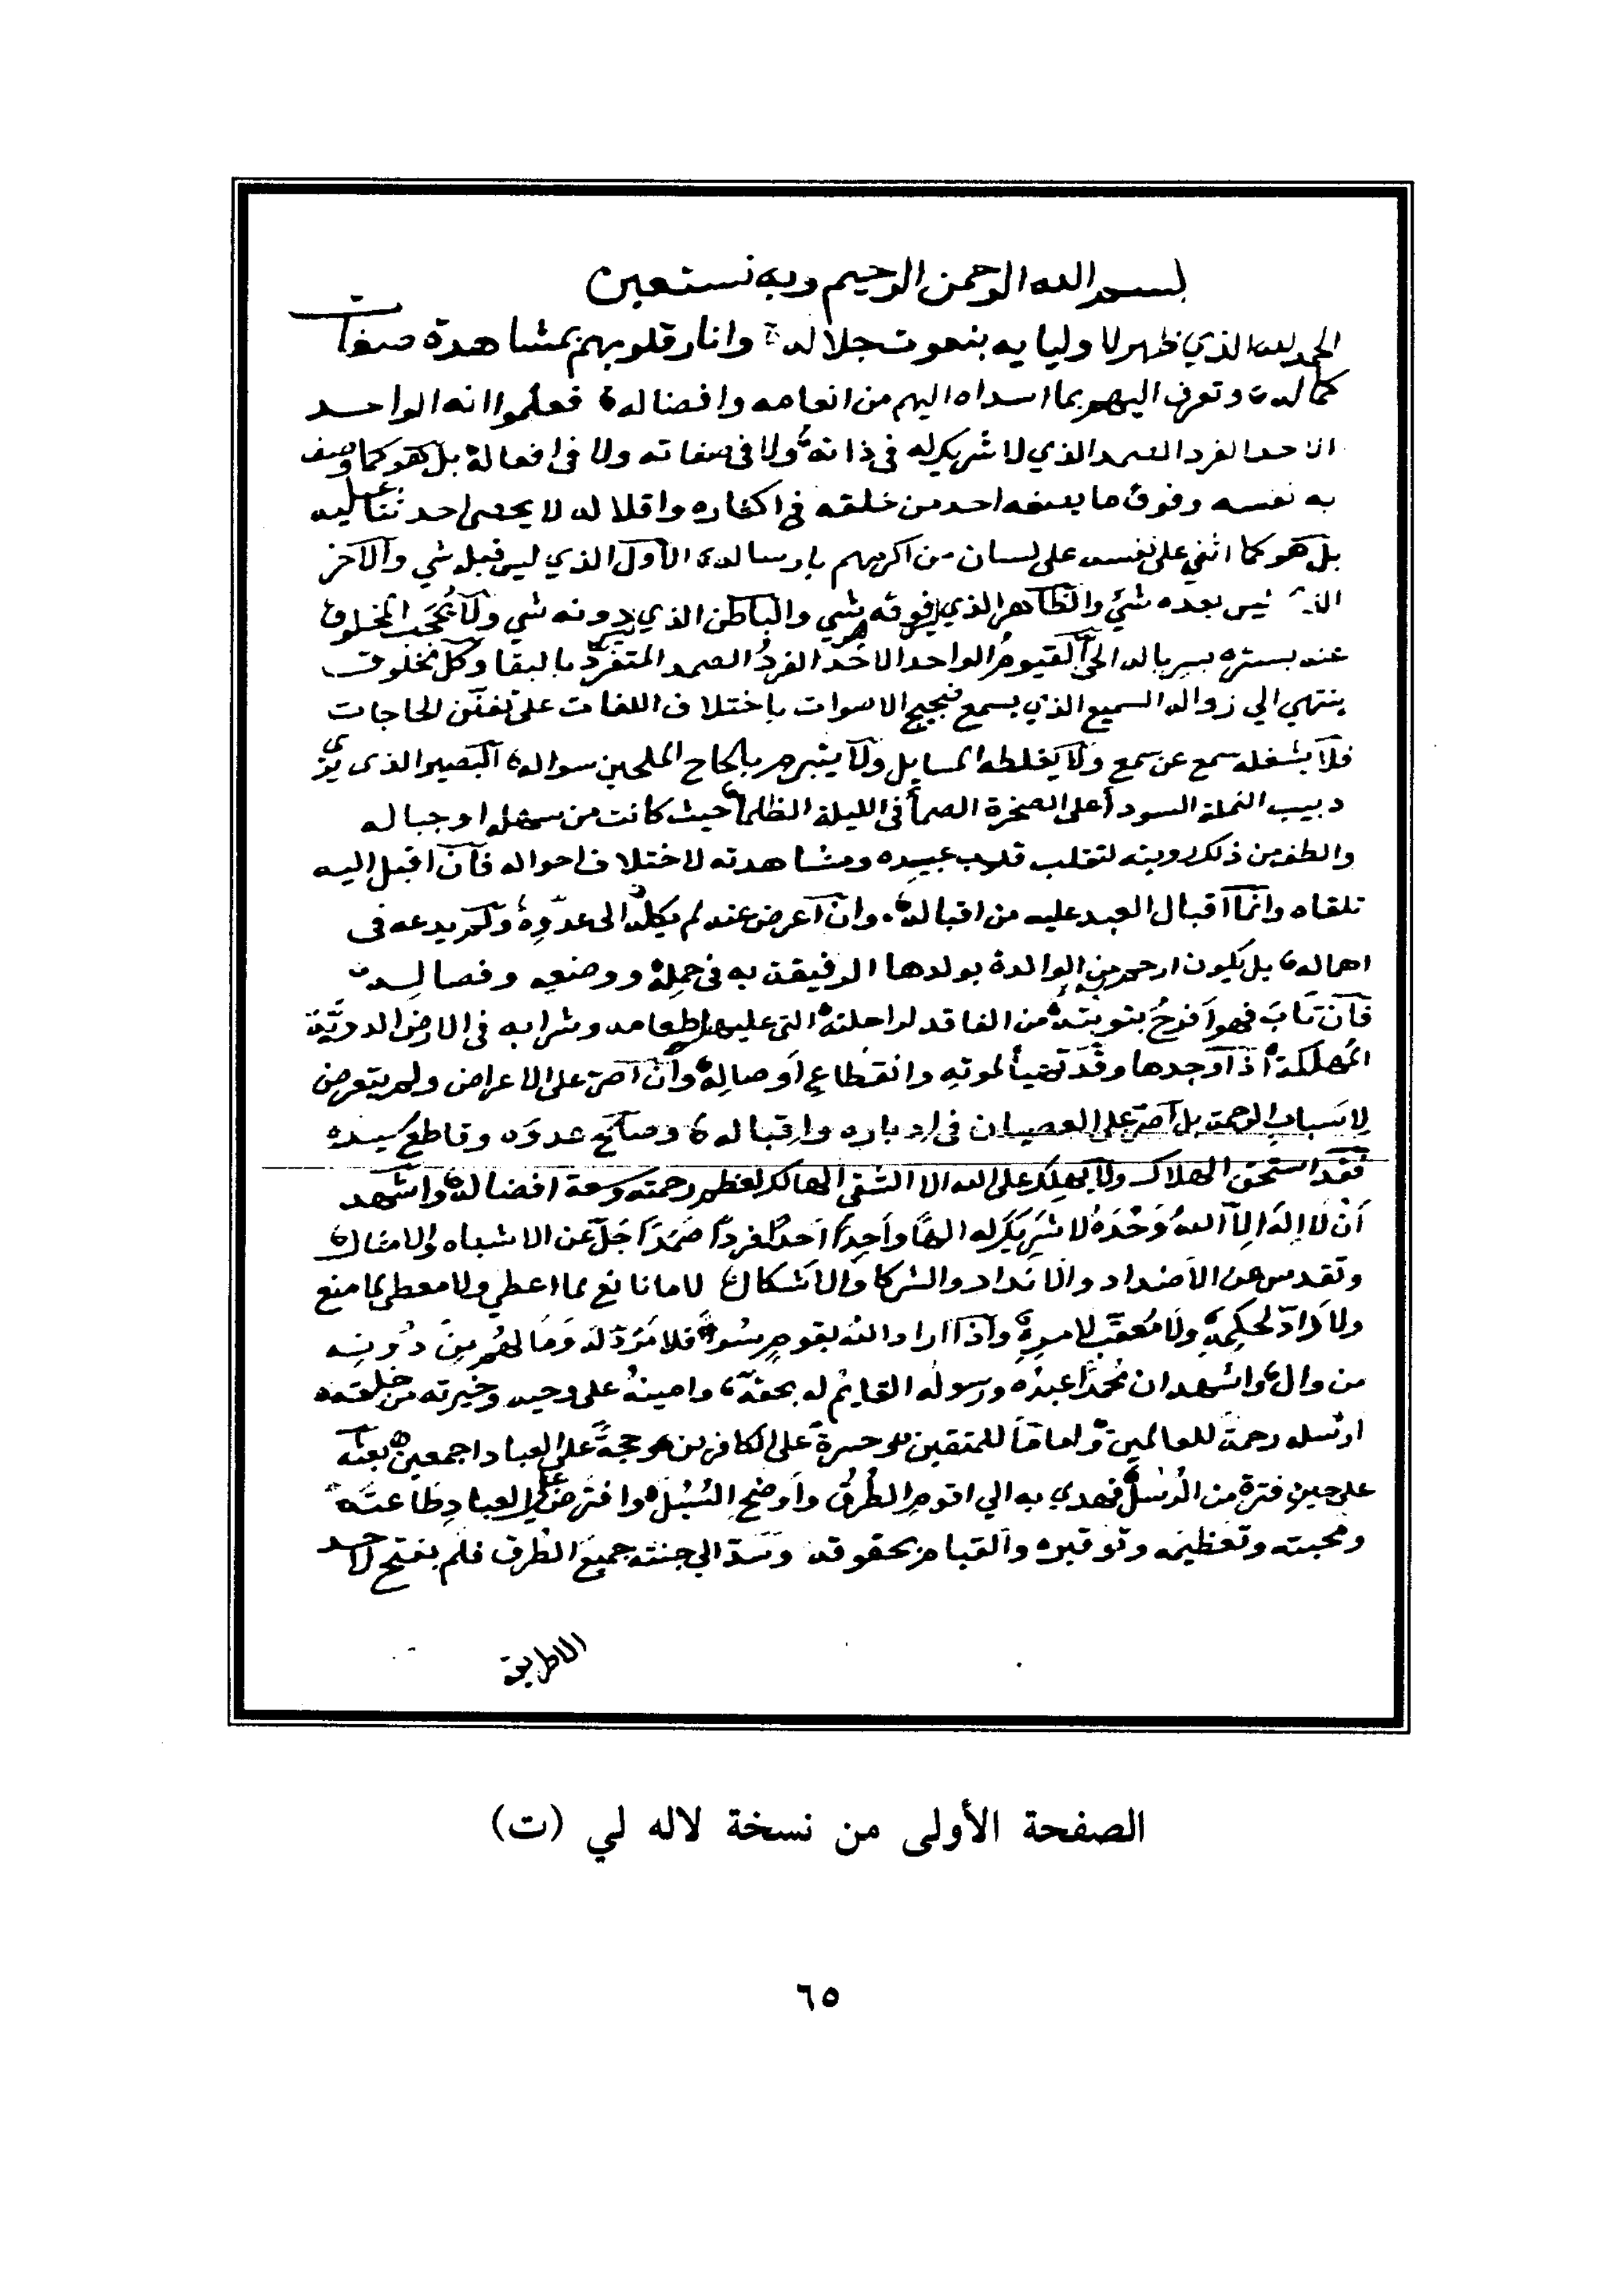 بسم الله الرحمن الرحيم وبه نستعين
الحمد لله الذي ظهر لاوليايه بنعوت جلاله وانار قلوبهم بمشاهدة صفات
كماله وتعرف اليهم بما اسداه اليهم من انعامه وافضاله فعلموا انه الواحد
الاحد الفرد الصمد الذي لا شريك له في ذاته ولا في صفاته ولا في افعاله بل هو كما وصف
به نفسه وفوق ما يصفه احد من خلقه في اكثاره واقلاله لا يحصى احد ثنا عليه
بل هو كما اثني على نفسه على لسان من اكرمهم بارساله الأول الذي ليس قبله شي والآخر
الذي ليس بعده شئ والظاهر الذي ليس فوقه شي والباطن الذي ليس دونه شي ولا يحجب المخلوق
عنه بستره بسرباله الحي القيوم الواحد الاحد الفرد الصمد المتفرد بالبقا وكل مخلوق
ينتهي الي زواله السميع الذي يسمع ضجيج الاصوات باختلاف اللغات على تفنن الحاجات
فلا يشغله سمع عن سمع ولا يغلطه المسايل ولا يتبرم بالحاح الملحين سواله البصير الذى يرى
دبيب النملة السودا على الصخرة الصما في الليلة الظلما حيث كانت من سهله او جباله
والطف من ذلك رويته لتقلب قلب عبيده ومشاهدته لاختلاف احواله فان اقبل اليه
تلقاه وانما اقبال العبد عليه من اقباله وان اعرض عنه لم يكله الى عدوه ولم يدعه فى
اهماله بل يكون ارحم من الوالدة بولدها الرفيقة به في حمله ووضعه وفصاله
فان تاب فهو افرح بتوبته من الفاقد لراحلته التى عليها طعامه وشرابه فى الارض الدوية
المهلكة اذا وجدها وقد تهيأ لموته وانقطاع أوصاله وان اصر على الاعراض ولم يتعرض
لاسباب الرحمة بل اصر على العصيان فى ادباره واقباله وصالح عدوه وقاطع سيده
فقد استحق الهلاك ولا يهلك على الله الا الشقي الهالك لعظم رحمته وسعة افضاله واشهد
أن لا إله إلا الله وحده لا شريك له الها واحدا احدا فردا صمدا جل عن الاشباه والامثال
وتقدس عن الأضداد والانداد والشركا والأشكال لا مانع لما اعطي ولا معطي لما منع
ولا راد لحكمه ولا معقب لامره واذا اراد الله بقوم سوا فلا مرد له وما لهم من دونه
من وال واشهد ان محمدا عبده ورسوله القايم له بحقه وامينه على وحيه وخيرته من خلقه
ارسله رحمة للعالمين واماما للمتقين وحسرة على الكافرين وحجة على العباد اجمعين بعثه
على حين فترة من الرسل فهدي به الي اقوم الطرق وأوضح السبل وافترض على العباد طاعته
ومحبته وتعظيمه وتوقيره والقيام بحقوقه وسد الي جنته جميع الطرق فلم يفتح لاحد
الا طريقه
الصفحة الأولى من نسخة لاله لي (ت)
٦٥